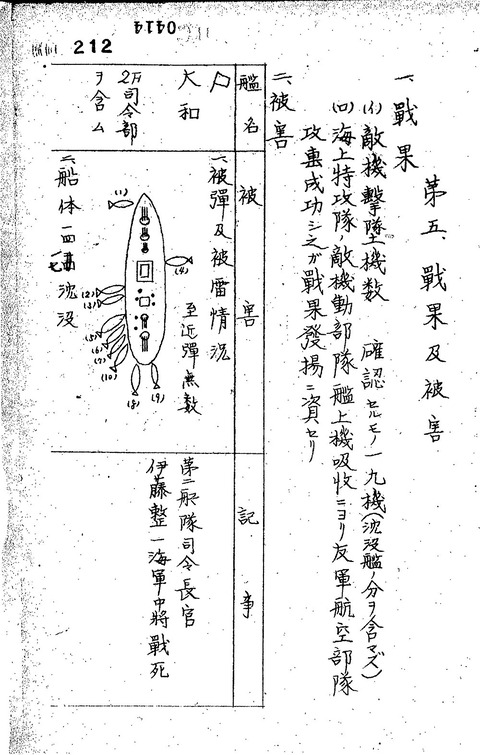 0414
212
第五、戰果及被害
一、戰果
(イ)敵機擊墜機數 確認セルモノ一九機(沈没艦ノ分ヲ含マズ)
(ロ)海上特攻隊ノ敵機動部隊艦上機吸收ニヨリ友軍航空部隊
攻擊成功シ之ガ戰果發揚ニ資セリ
二、被害
艦名
被害
記事
大和
2F司令部
ヲ含ム
一、被彈及被雷情況
至近彈無數
(1)
(2)
(3)
(4)
(5)
(6)
(7)
(10)
(8)
(9)
二、船体
沈没
第二艦隊司令長官
伊藤整一海軍中將戰死